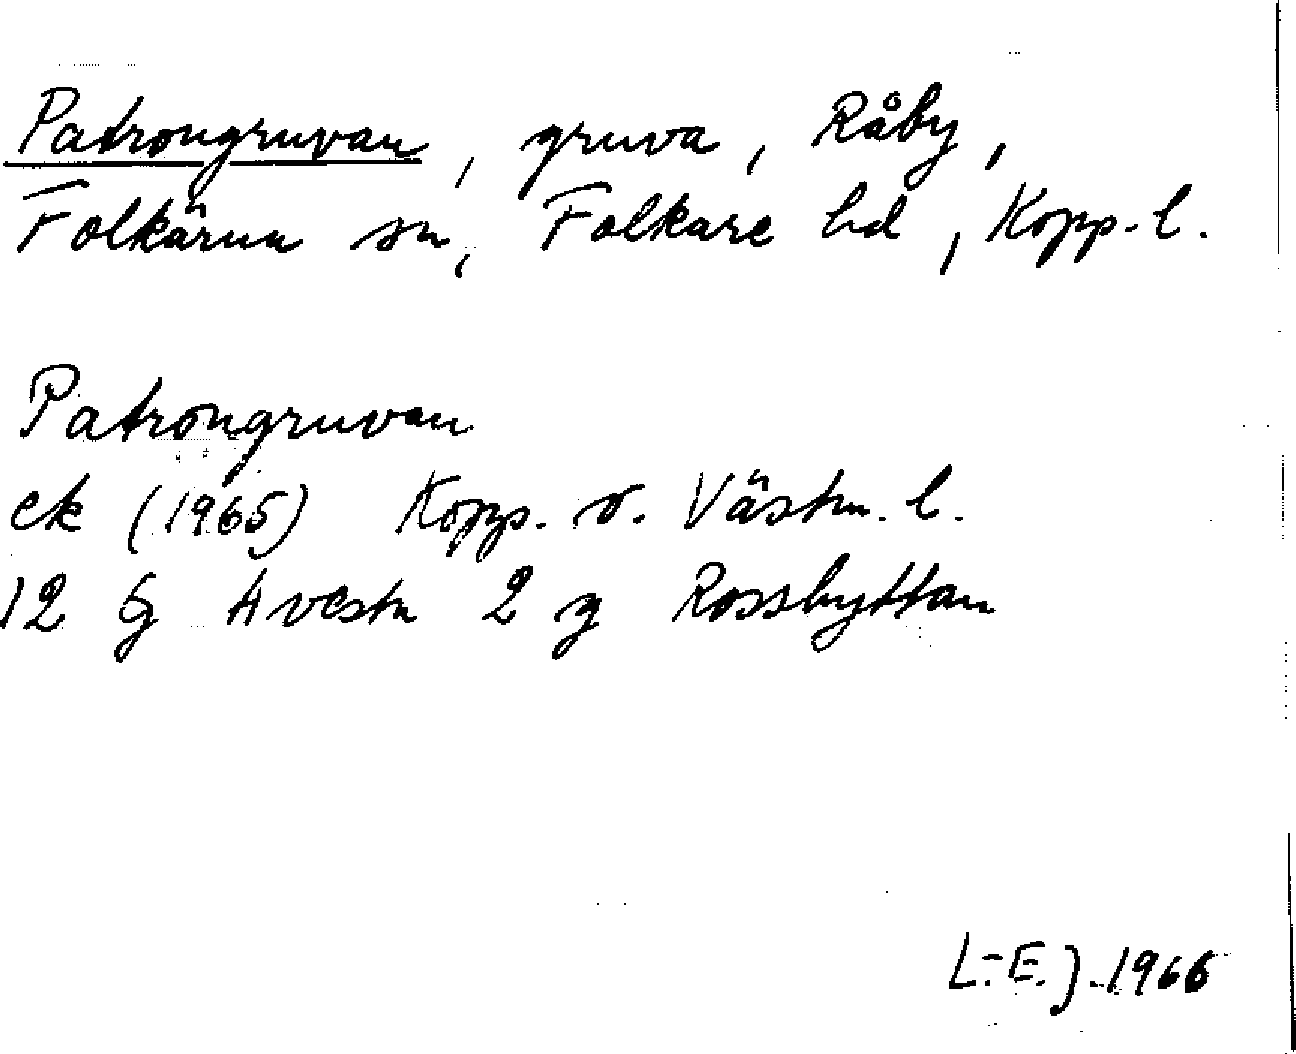 Patrongruvan, gruva, Råby,
Folkärna sn, Folkare hd, Kopp. l.
Patrongruvan
ek (1965) Kopp. o. Västm. l.
12 G Avesta 2 g Rossbyttan
L.-E. J. 1966